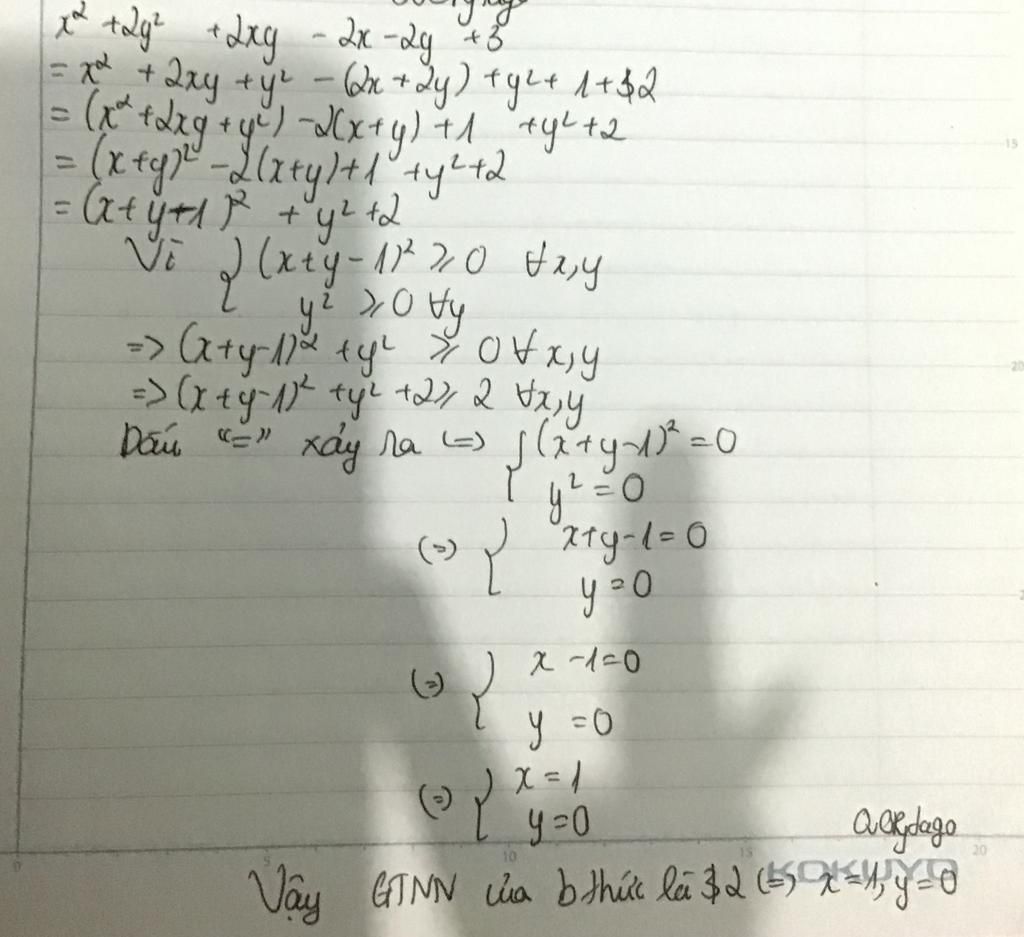 x² + 2y² + 2xy - 2x - 2y + 3
= x² + 2xy + y² - (2x + 2y) + y² + 1 + 2
= (x² + 2xy + y²) - 2(x + y) + 1 + y² + 2
= (x + y)² - 2(x + y) + 1 + y² + 2
= (x + y + 1)² + y² + 2
Vì { (x + y - 1)² ⩾ 0 ∀x,y
y² ⩾ 0 ∀y
=> (x + y - 1)² + y² ⩾ 0 ∀x,y
=> (x + y - 1)² + y² + 2 ⩾ 2 ∀x,y
Dấu "=" xảy ra (=) { (x + y - 1)² = 0
y² = 0
(=) { x + y - 1 = 0
y = 0
(=) { x - 1 = 0
y = 0
(=) { x = 1
y = 0
0 5 10 15 20
KOKUYO
Vậy GTNN của bthức là 2 (=) x = 1, y = 0
15
20